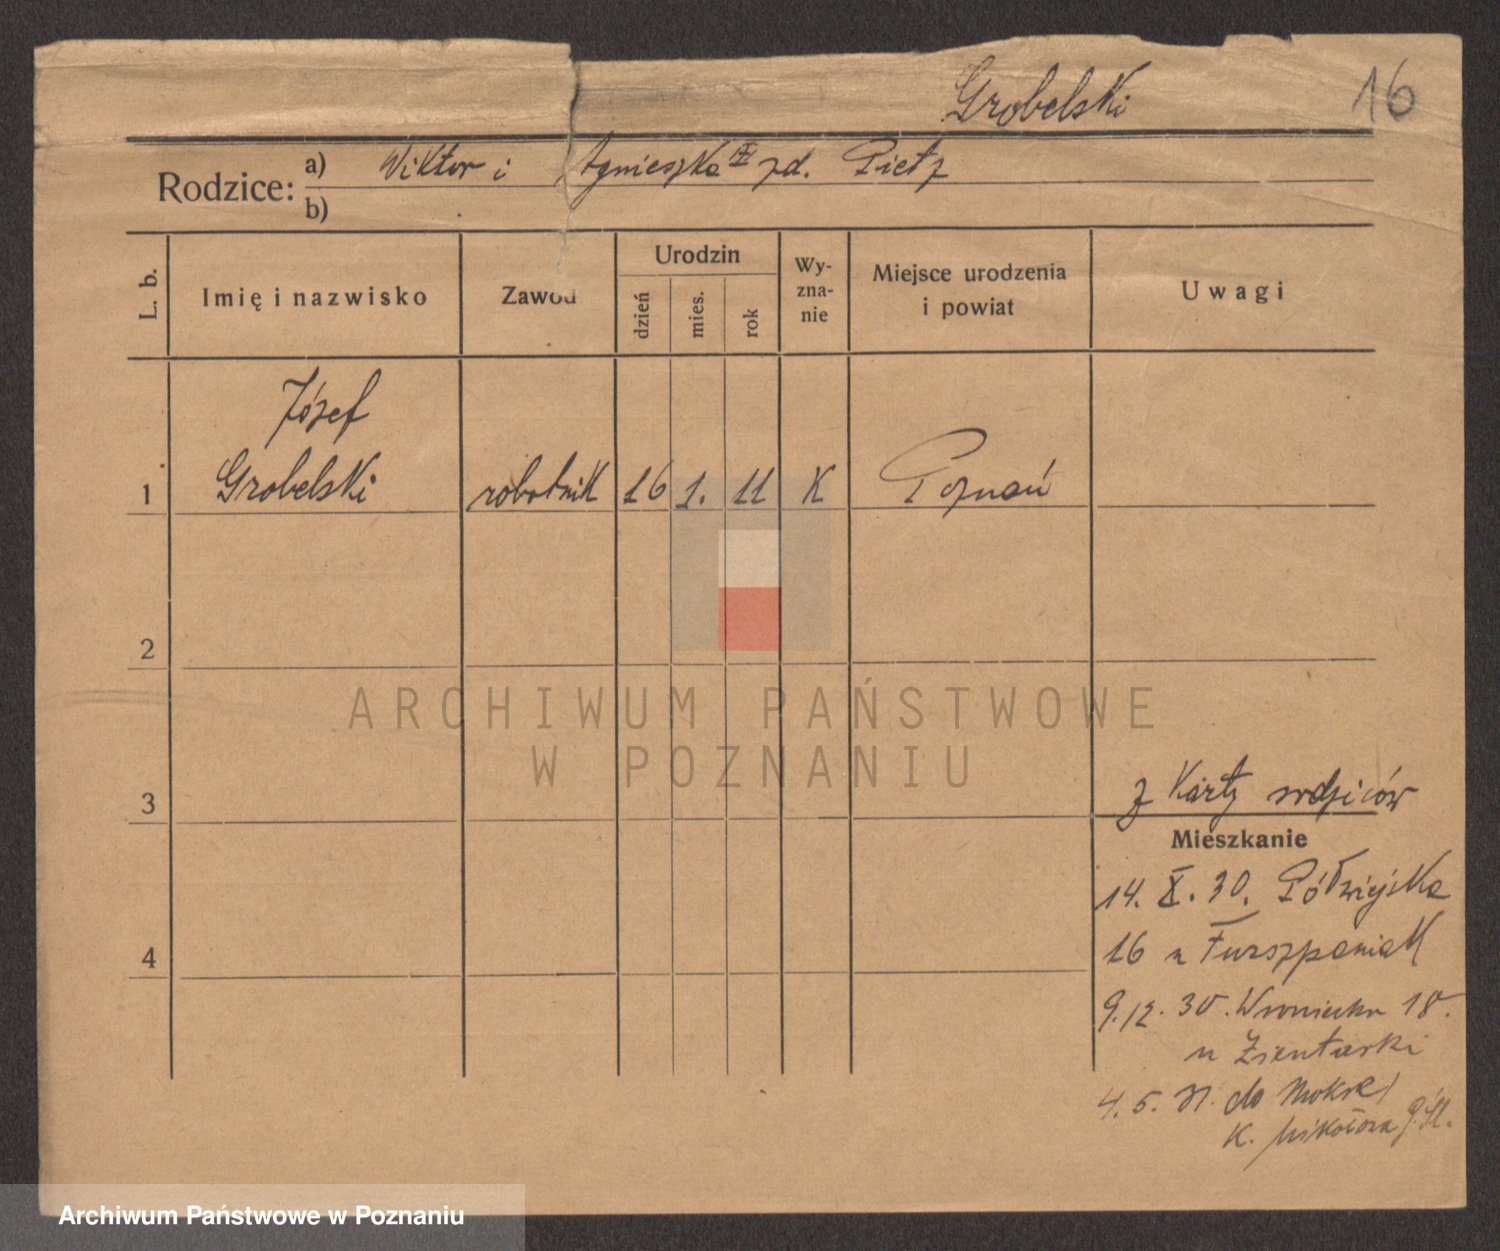 Grobelski 16
Rodzice: a) Wiktor i Agnieszka zd. Pietz
b)
L. b. Imię i nazwisko Zawód Urodzin dzień mies. rok Wy-zna-nie Miejsce urodzenia i powiat Uwagi
Józef
1 Grobelski robotnik 16 1. 11 K Poznań
2
ARCHIWUM PAŃSTWOWE
W POZNANIU
z Karty rodziców
3
Mieszkanie
14. X. 30. Półwiejska
16 u Furszpaniak
4
9.12.30. Wroniecka 18.
u Zientarski
4. 5. 31. do Mokre
K. Mikołowa G.Śl.
Archiwum Państwowe w Poznaniu